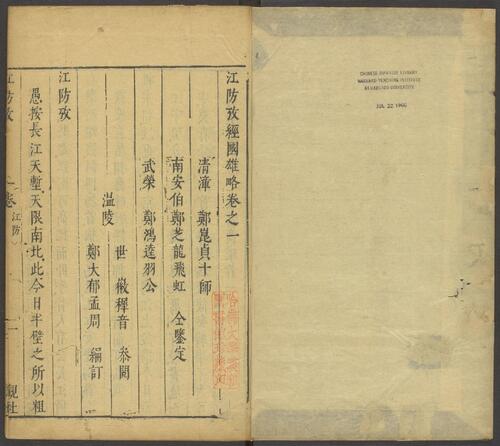 江防攷經國雄略卷之一
清漳 鄭崑貞十師
南安伯鄭芝龍飛虹 仝鑒定
武榮 鄭鴻逵羽公
世徽穉音 叅閱
温陵
鄭大郁孟周 編訂
江防攷
愚按長江天塹天限南北此今日半壁之所以粗
江防攷 卷 江防 一 觀社
CHINESE-JAPANESE LIBRARY
HARVARD-YENCHING INSTITUTE
AT HARVARD UNIVERSITY
JUL 22 1960